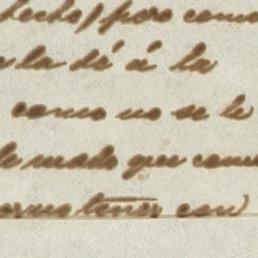 hecho) pero como
la dé á la
como no se le
de modo que como
tener con